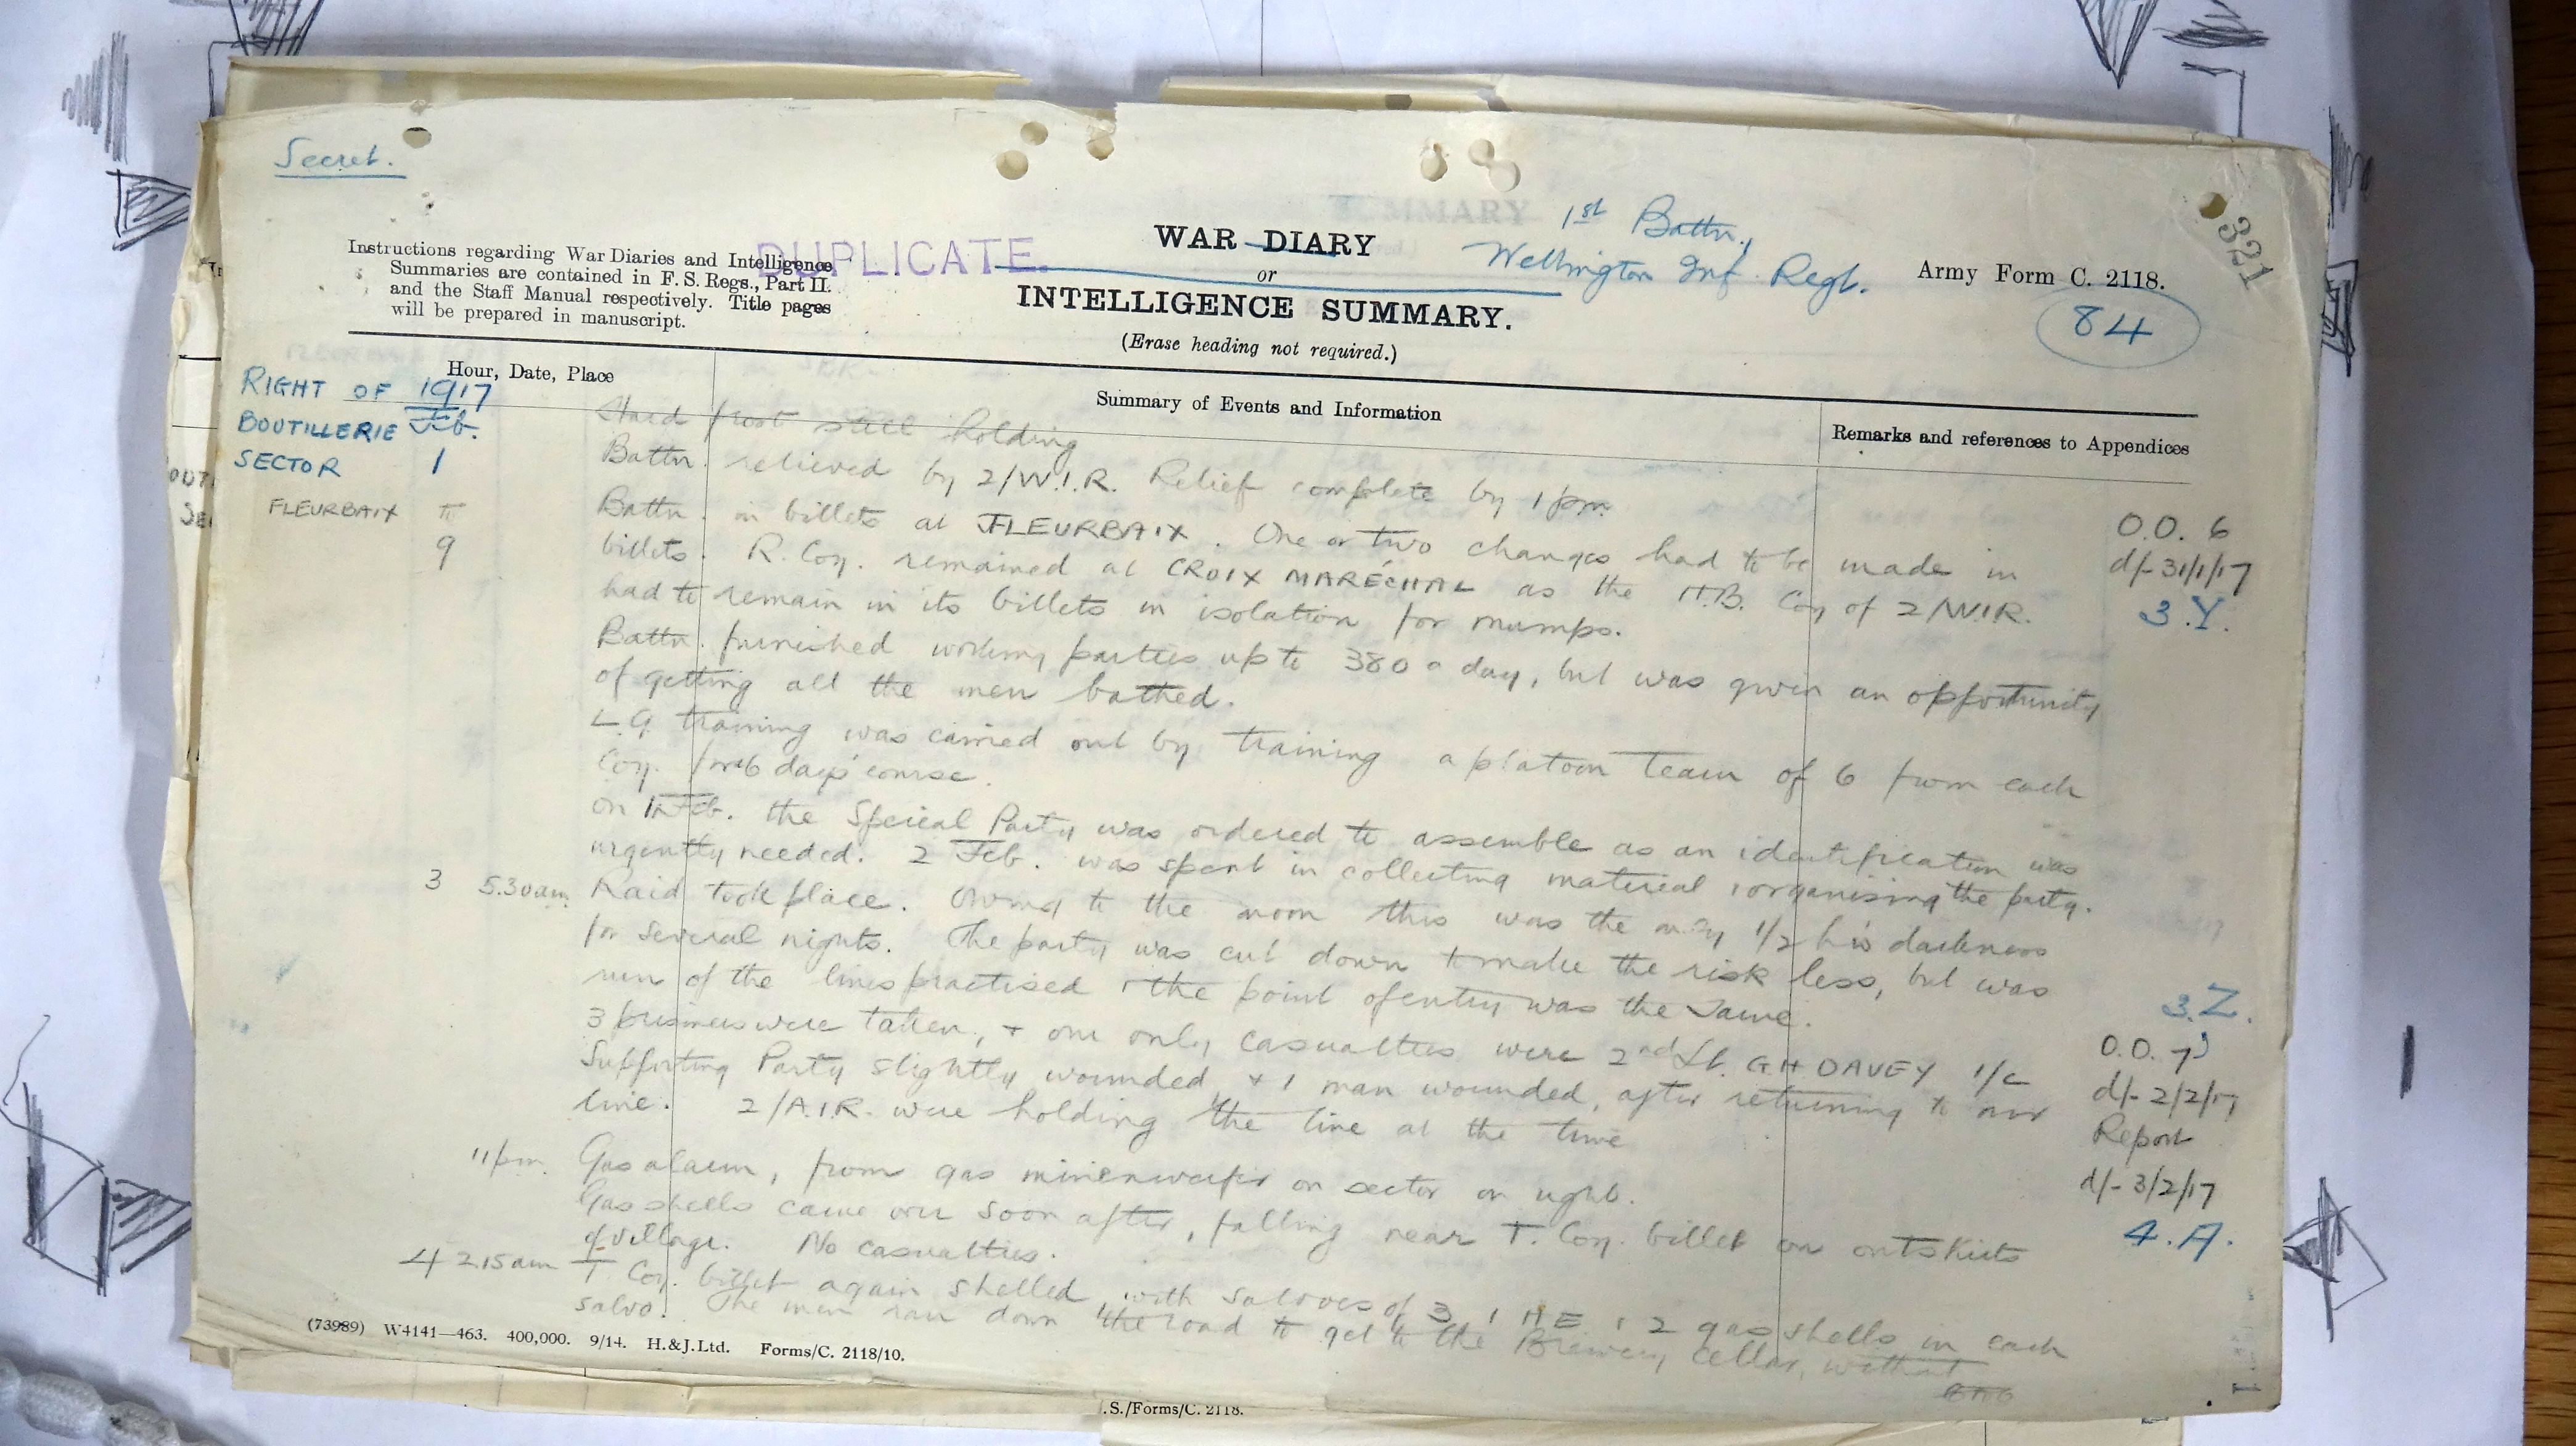 Secret.
DUPLICATE.
Instructions regarding War Diaries and Intelligence
Summaries are contained in F. S. Regs., Part II.
and the Staff Manual respectively. Title pages
will be prepared in manuscript.
WAR DIARY
or
INTELLIGENCE SUMMARY.
(Erase heading not required.)
1st Battn.,
Wellington Inf. Regt.
Army Form C. 2118.
321
84
Hour, Date, Place
Summary of Events and Information
Remarks and references to Appendices
RIGHT OF 1917
BOUTILLERIE Feb.
SECTOR 1
Hard frost still holding
Battn. relieved by 2/W.I.R. Relief complete by 1 pm
FLEURBAIX to
9
Battn. in billets at FLEURBAIX. One or two changes had to be made in
billets. R. Coy. remained at CROIX MARÉCHAL as the H.B. Coy of 2/WIR.
had to remain in its billets in isolation for mumps.
O.O. 6
d/- 31/1/17
3.Y.
Battn. furnished working parties up to 380 a day, but was given an opportunity
of getting all the men bathed.
L.G. training was carried out by training a platoon team of 6 from each
Coy. for 6 days' course.
on 1 Feb. the Special Party was ordered to assemble as an identification was
urgently needed. 2 Feb. was spent in collecting material & organising the party.
3 5.30am. Raid took place. Owing to the moon this was the only 1/2 hr's darkness
for several nights. The party was cut down to make the risk less, but was
run of the lines practised & the point of entry was the same.
3 prisoners were taken, + our only casualties were 2nd Lt. G.H DAVEY i/c
Supporting Party slightly wounded, + 1 man wounded, after returning to our
line. 2/A.I.R. were holding the line at the time
3.Z.
O.O. 7
d/- 2/2/17
Report
d/- 3/2/17
4.A.
11 pm. Gas alarm, from gas minenwerfer on sector on right.
Gas shells came over soon after, falling near T. Coy. billet on outskirts
of village. No casualties.
4 2.15 am T. Coy. billet again shelled with salvoes of 3, 1 HE & 2 gas shells in each
salvo. The men ran down the road to get to the Brewery cellar, without
(73989) W4141—463. 400,000. 9/14. H.&J.Ltd. Forms/C. 2118/10.
.S./Forms/C. 2118.